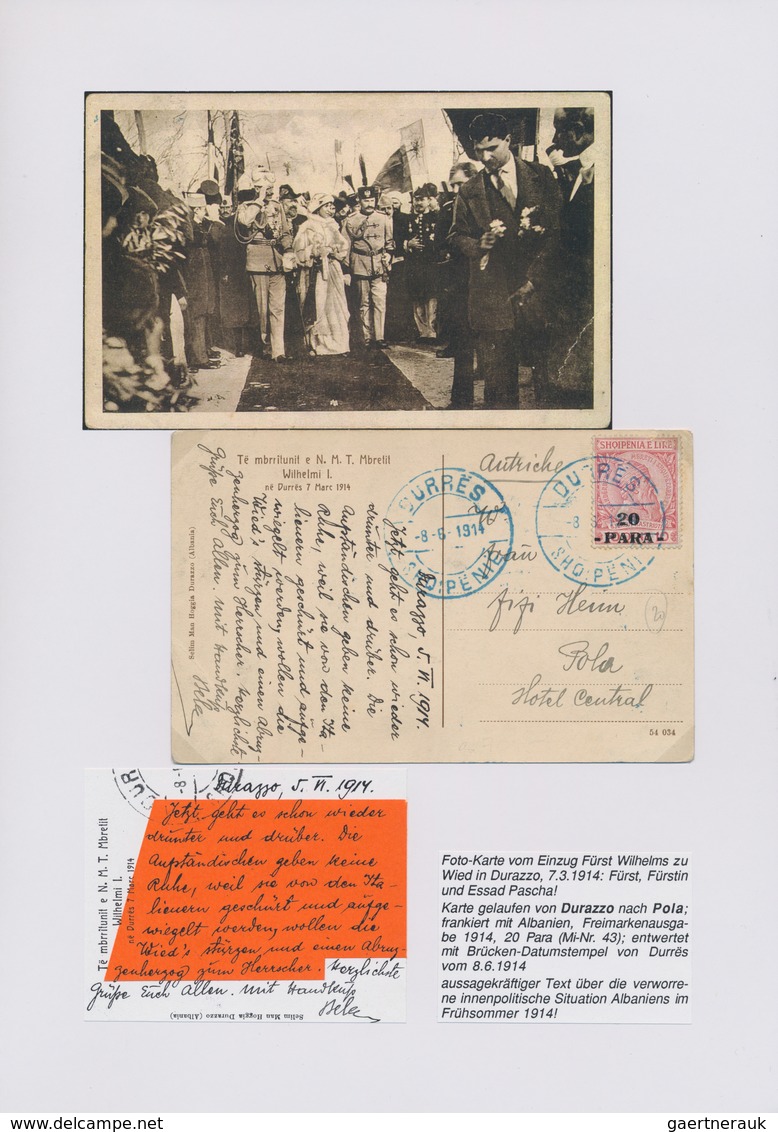 Të mbrritunit e N. M. T. Mbretit
Wilhelmi I.
në Durrës 7 Marc 1914
Autriche
SHQIPENIA E LIRE
20
-PARA-
DURRËS
-8-6-1914
SHQIPENIE
DURRËS
-8
SHQIPENI
Durazzo, 5. VI. 1914.
Jetzt geht es schon wieder
drunter und drüber. Die
Aufständischen geben keine
Ruhe, weil sie von den Ita-
lienern geschürt und aufge-
wiegelt werden, wollen die
Wied's stürzen und einen Abruz-
zenherzog zum Herrscher. Herzlichste
Grüße Euch Allen. Mit Handkuß
Bela
Frau
Fifi Heim
Pola
Hotel Central
20
54 034
Selim Man Hoggia Durazzo (Albania)
DUR
-8-
Durazzo, 5. VI. 1914.
Jetzt geht es schon wieder
drunter und drüber. Die
Aufständischen geben keine
Ruhe, weil sie von den Ita-
lienern geschürt und aufge-
wiegelt werden, wollen die
Wied's stürzen und einen Abruz-
zenherzog zum Herrscher. Herzlichste
Grüße Euch Allen. Mit Handkuß
Bela
Të mbrritunit e N. M. T. Mbretit
Wilhelmi I.
në Durrës 7 Marc 1914
Selim Man Hoggia Durazzo (Albania)
Foto-Karte vom Einzug Fürst Wilhelms zu
Wied in Durazzo, 7.3.1914: Fürst, Fürstin
und Essad Pascha!
Karte gelaufen von Durazzo nach Pola;
frankiert mit Albanien, Freimarkenausga-
be 1914, 20 Para (Mi-Nr. 43); entwertet
mit Brücken-Datumstempel von Durrës
vom 8.6.1914
aussagekräftiger Text über die verworre-
ne innenpolitische Situation Albaniens im
Frühsommer 1914!
gaertnerauk